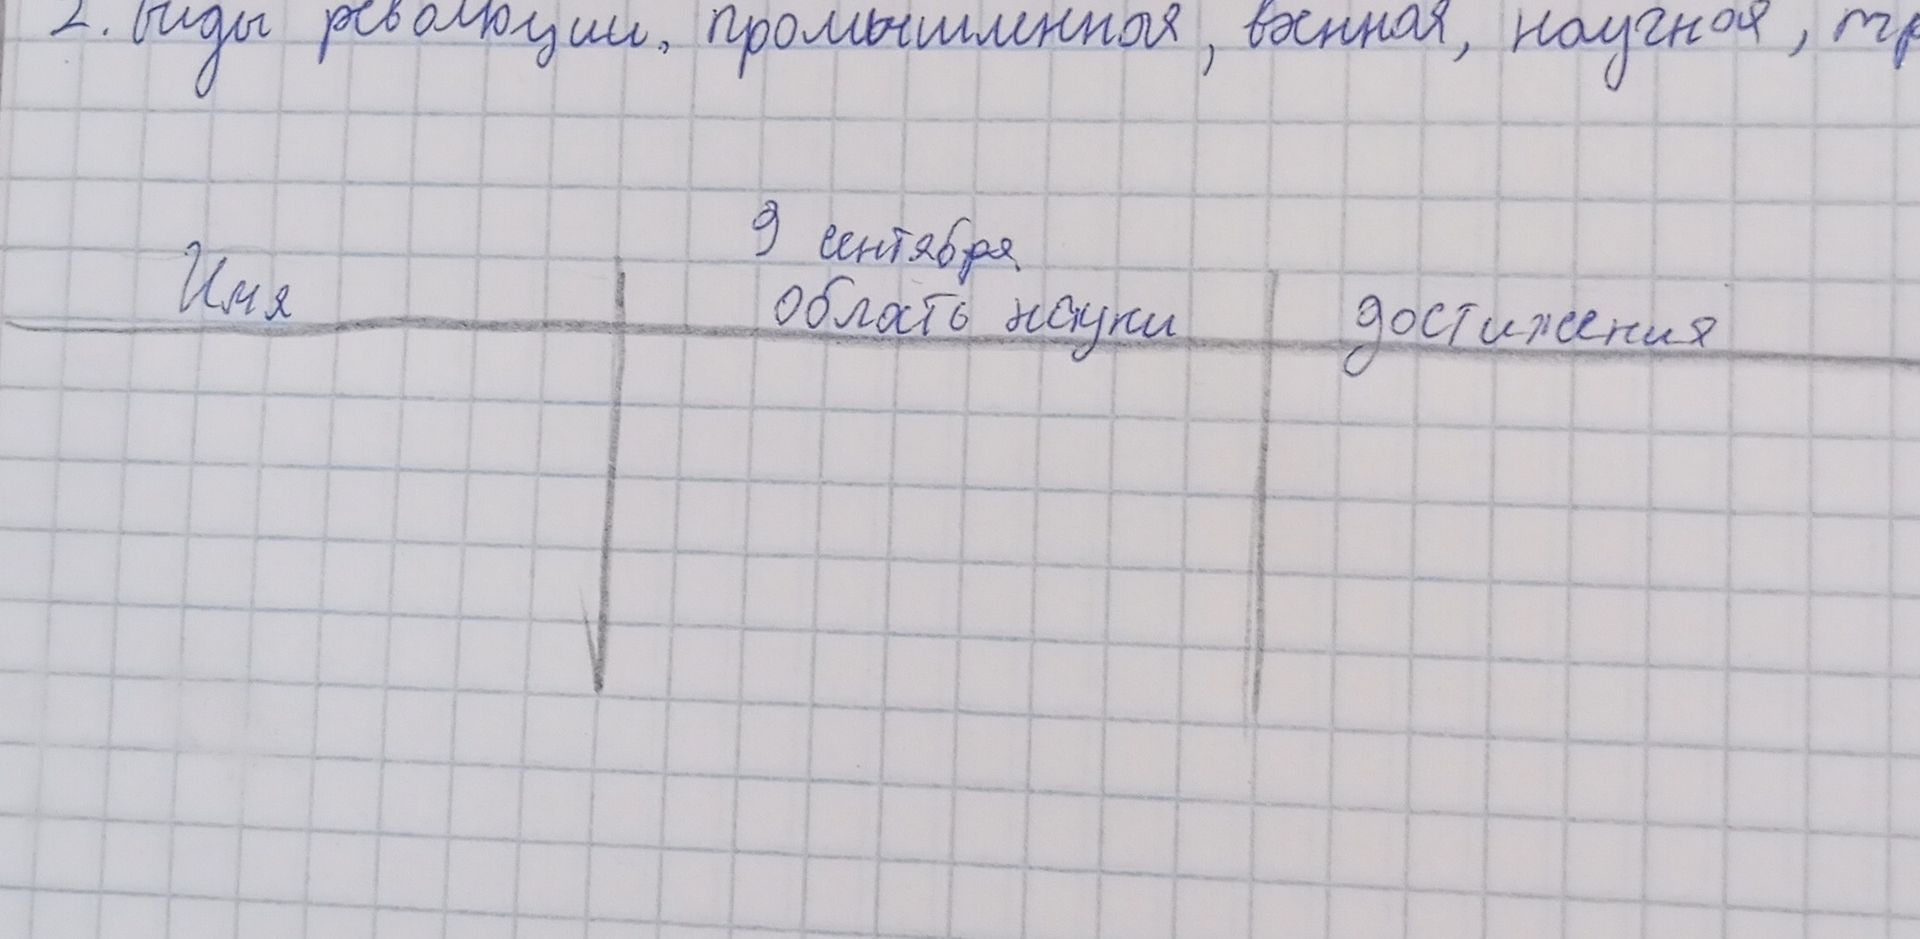 2. Виды революции, промышленная, военная, научная, тр
9 сентября
Имя
облать науки
достижения